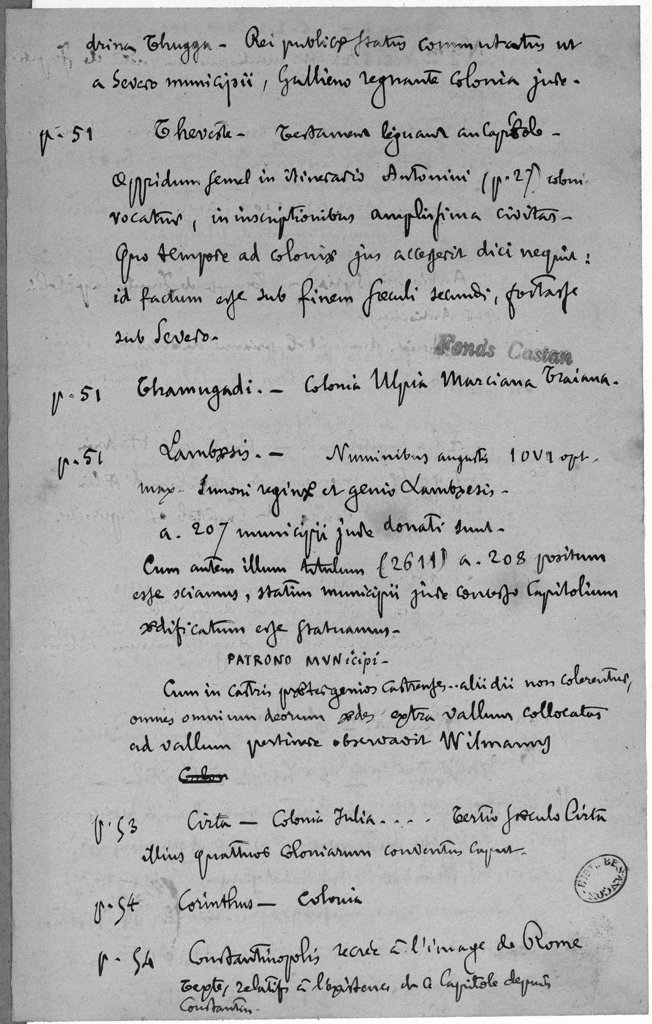 drina Thugga - Rei publicæ status commutatus ut
a Severo municipii, Gallieno regnante colonia jure -
p. 51 Theveste - Testament léguant au Capitole -
Oppidum semel in itinerario Antonini (p. 27)
vocatur, in inscriptionibus amplissima civitas -
Quo tempore ad coloniæ jus accesserit dici nequit :
id factum esse sub finem sæculi secundi, fortasse
sub Severo -
Fonds Castan
p. 51 Thamugadi. - Colonia Ulpia Marciana Traiana.
p. 51 Lambæsis. - Numinibus augustis IOVI opt.
max. Iunoni reginæ et genio Lambæsis -
a. 207 municipii jure donati sunt -
Cum autem illum titulum (2611) a. 208 positum
esse sciamus, statim municipii jure concesso Capitolium
ædificatum esse statuamus -
PATRONO MVNicipi -
Cum in castris præter genios castrenses.. alii dii non colerentur,
omnes omnium deorum ædes extra vallum collocatas
ad vallum pertinere observavit Wilmanns
p. 53 Cirta - Colonia Iulia.... Tertio sæculo Cirta
illius quattuor coloniarum conventus caput -
BIBL. BESANCON
p. 54 Corinthus - Colonia
p. 54 Constantinopolis recréé à l'image de Rome
Textes relatifs à l'existence de Capitole depuis
Constantin.